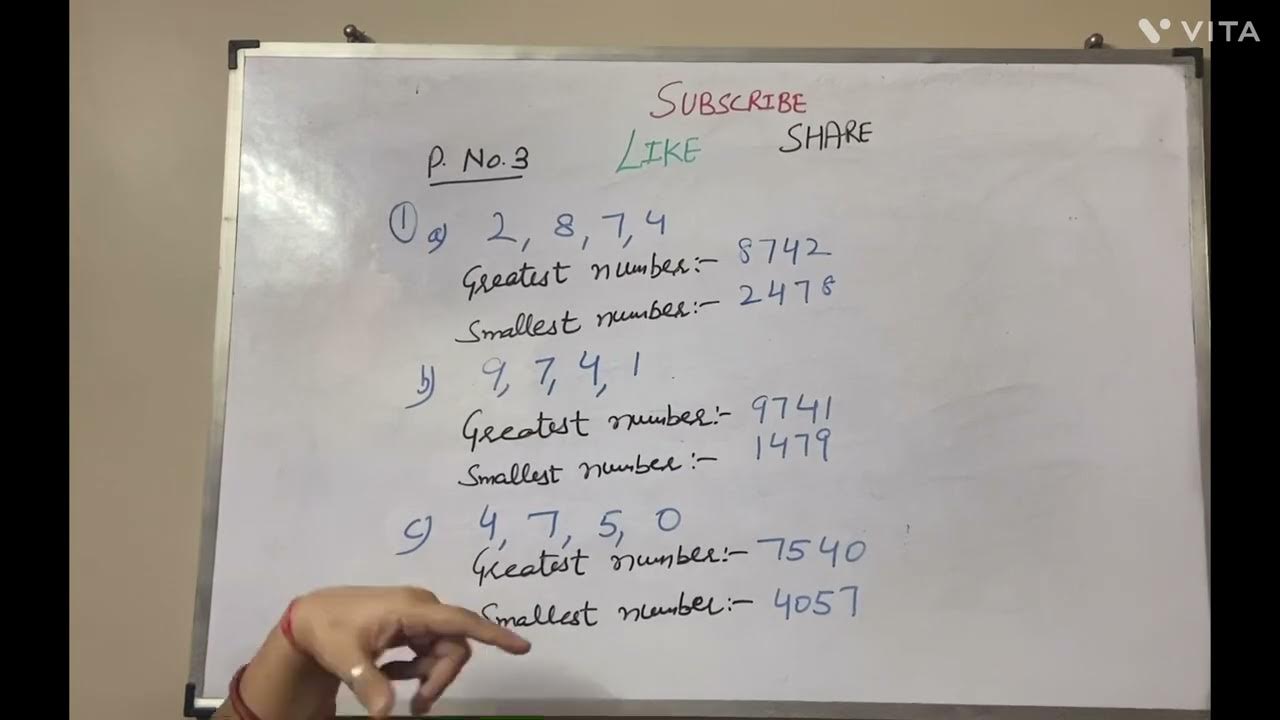 VITA
SUBSCRIBE
LIKE SHARE
P. No. 3
① a) 2, 8, 7, 4
Greatest number:- 8742
Smallest number:- 2478
b) 9, 7, 4, 1
Greatest number:- 9741
Smallest number:- 1479
c) 4, 7, 5, 0
Greatest number:- 7540
Smallest number:- 4057